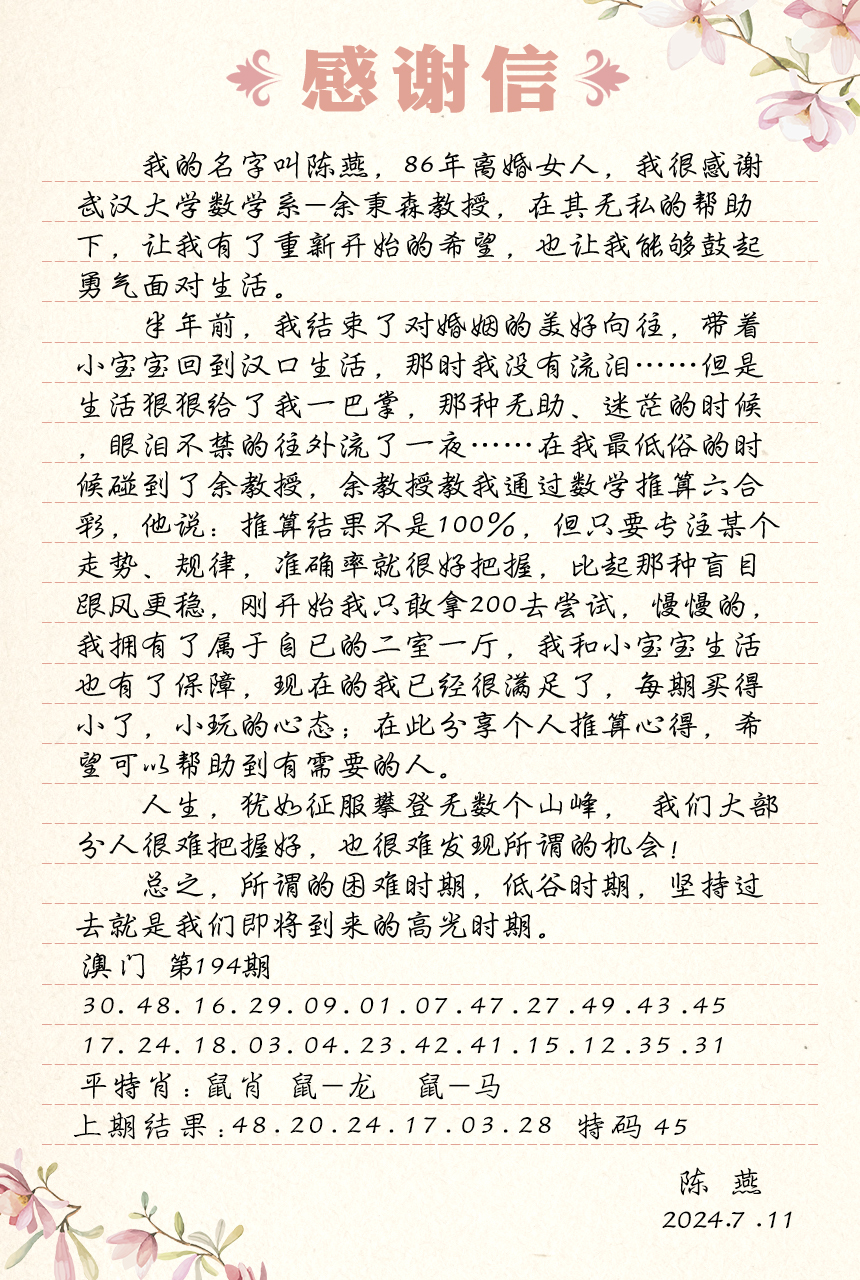 感谢信
我的名字叫陈燕，86年离婚女人，我很感谢
武汉大学数学系—余秉森教授，在其无私的帮助
下，让我有了重新开始的希望，也让我能够鼓起
勇气面对生活。
半年前，我结束了对婚姻的美好向往，带着
小宝宝回到汉口生活，那时我没有流泪……但是
生活狠狠给了我一巴掌，那种无助、迷茫的时候
，眼泪不禁的往外流了一夜……在我最低俗的时
候碰到了余教授，余教授教我通过数学推算六合
彩，他说：推算结果不是100%，但只要专注某个
走势、规律，准确率就很好把握，比起那种盲目
跟风更稳，刚开始我只敢拿200去尝试，慢慢的，
我拥有了属于自已的二室一厅，我和小宝宝生活
也有了保障，现在的我已经很满足了，每期买得
小了，小玩的心态；在此分享个人推算心得，希
望可以帮助到有需要的人。
人生，犹如征服攀登无数个山峰， 我们大部
分人很难把握好，也很难发现所谓的机会！
总之，所谓的困难时期，低谷时期，坚持过
去就是我们即将到来的高光时期。
澳门 第194期
30.48.16.29.09.01.07.47.27.49.43.45
17.24.18.03.04.23.42.41.15.12.35.31
平特肖：鼠肖 鼠—龙 鼠—马
上期结果：48.20.24.17.03.28 特码 45
陈 燕
2024.7.11